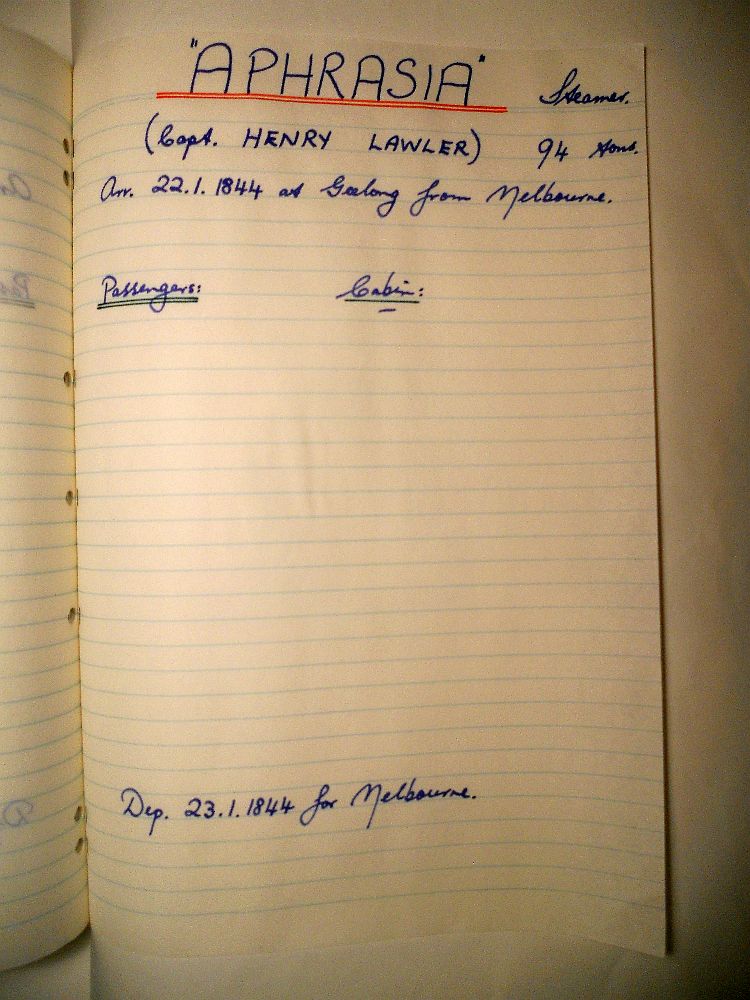 "APHRASIA" Steamer.
(Capt. HENRY LAWLER) 94 tons.
Arr. 22.1.1844 at Geelong from Melbourne.
Passengers: Cabin:
Dep. 23.1.1844 for Melbourne.